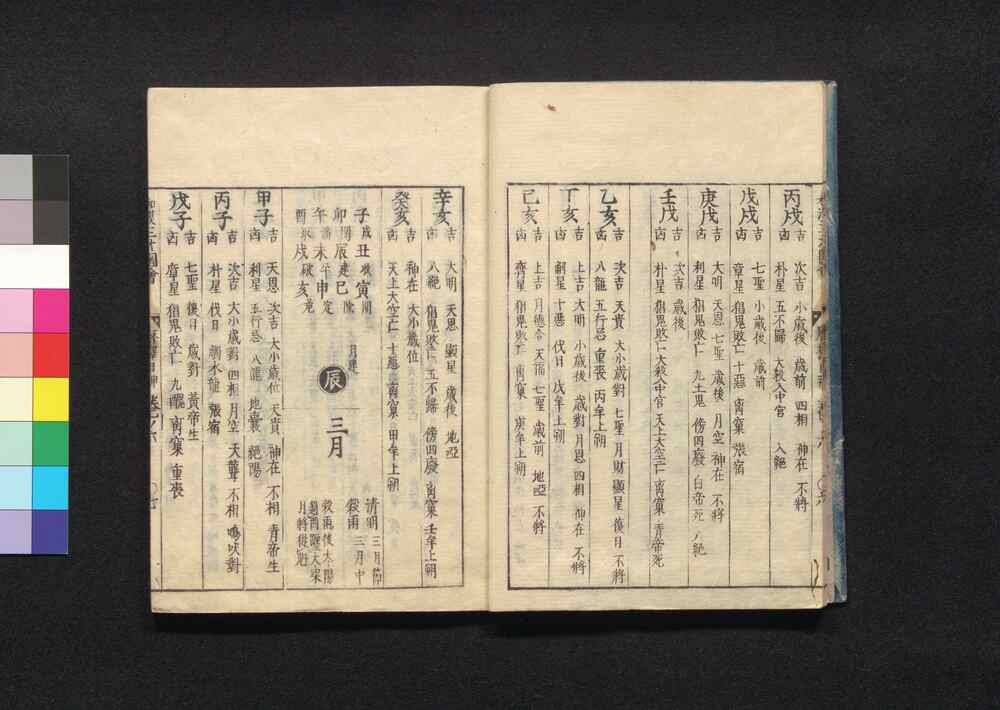 丙戌
吉 次吉 小歳後 歳前 四相 神在 不将
凶 朴星 五不歸 大殺入中宮 八絶
戊戌
吉 七聖 小歳後 歳前
凶 章星 狙鬼敗亡 十惡 离窠 張宿
庚戌
吉 大明 天恩 七聖 歳後 月空 神在 不将
凶 利星 狙鬼敗亡 九土鬼 傍四廢 白帝死 八絶
壬戌
吉 次吉 歳後
凶 朴星 狙鬼敗亡 大殺入中宮 天上大空亡 离窠 青帝死
乙亥
吉 次吉 天貴 大小歳對 七聖 月財 顕星 復日 不将
凶 八龍 五行忌 重喪 丙年上朔
丁亥
吉 上吉 大明 小歳後 歳對 月恩 四相 神在 不将
凶 嗣星 十惡 伐日 戊年上朔
己亥
吉 上吉 月徳合 天福 七聖 歳前 地啞 不将
凶 齊星 狙鬼敗亡 离窠 庚年上朔
辛亥
吉 大明 天恩 顕星 歳後 地啞
凶 八絶 狙鬼敗亡 五不歸 傍四廢 离窠 壬年上朔
癸亥
吉 神在 大小歳位
凶 天上大空亡 十惡 离窠 甲年上朔
子成 丑收 寅開
卯閉 辰建 巳除
午満 未平 申定
酉執 戌破 亥危
月建
辰
三月
清明 三月節
穀雨 三月中
穀雨後太陽
月將從魁
甲子
吉 天恩 次吉 大小歳位 天貴 神在 不相 青帝生
凶 利星 五行忌 八龍 地嚢 絶陽
丙子
吉 次吉 大小歳對 四相 月空 天聾 不相 鳴吠對
凶 朴星 伐日 觸水龍 張宿
戊子
吉 七聖 復日 歳對 黄帝生
凶 章星 狙鬼敗亡 九醜 离窠 重喪